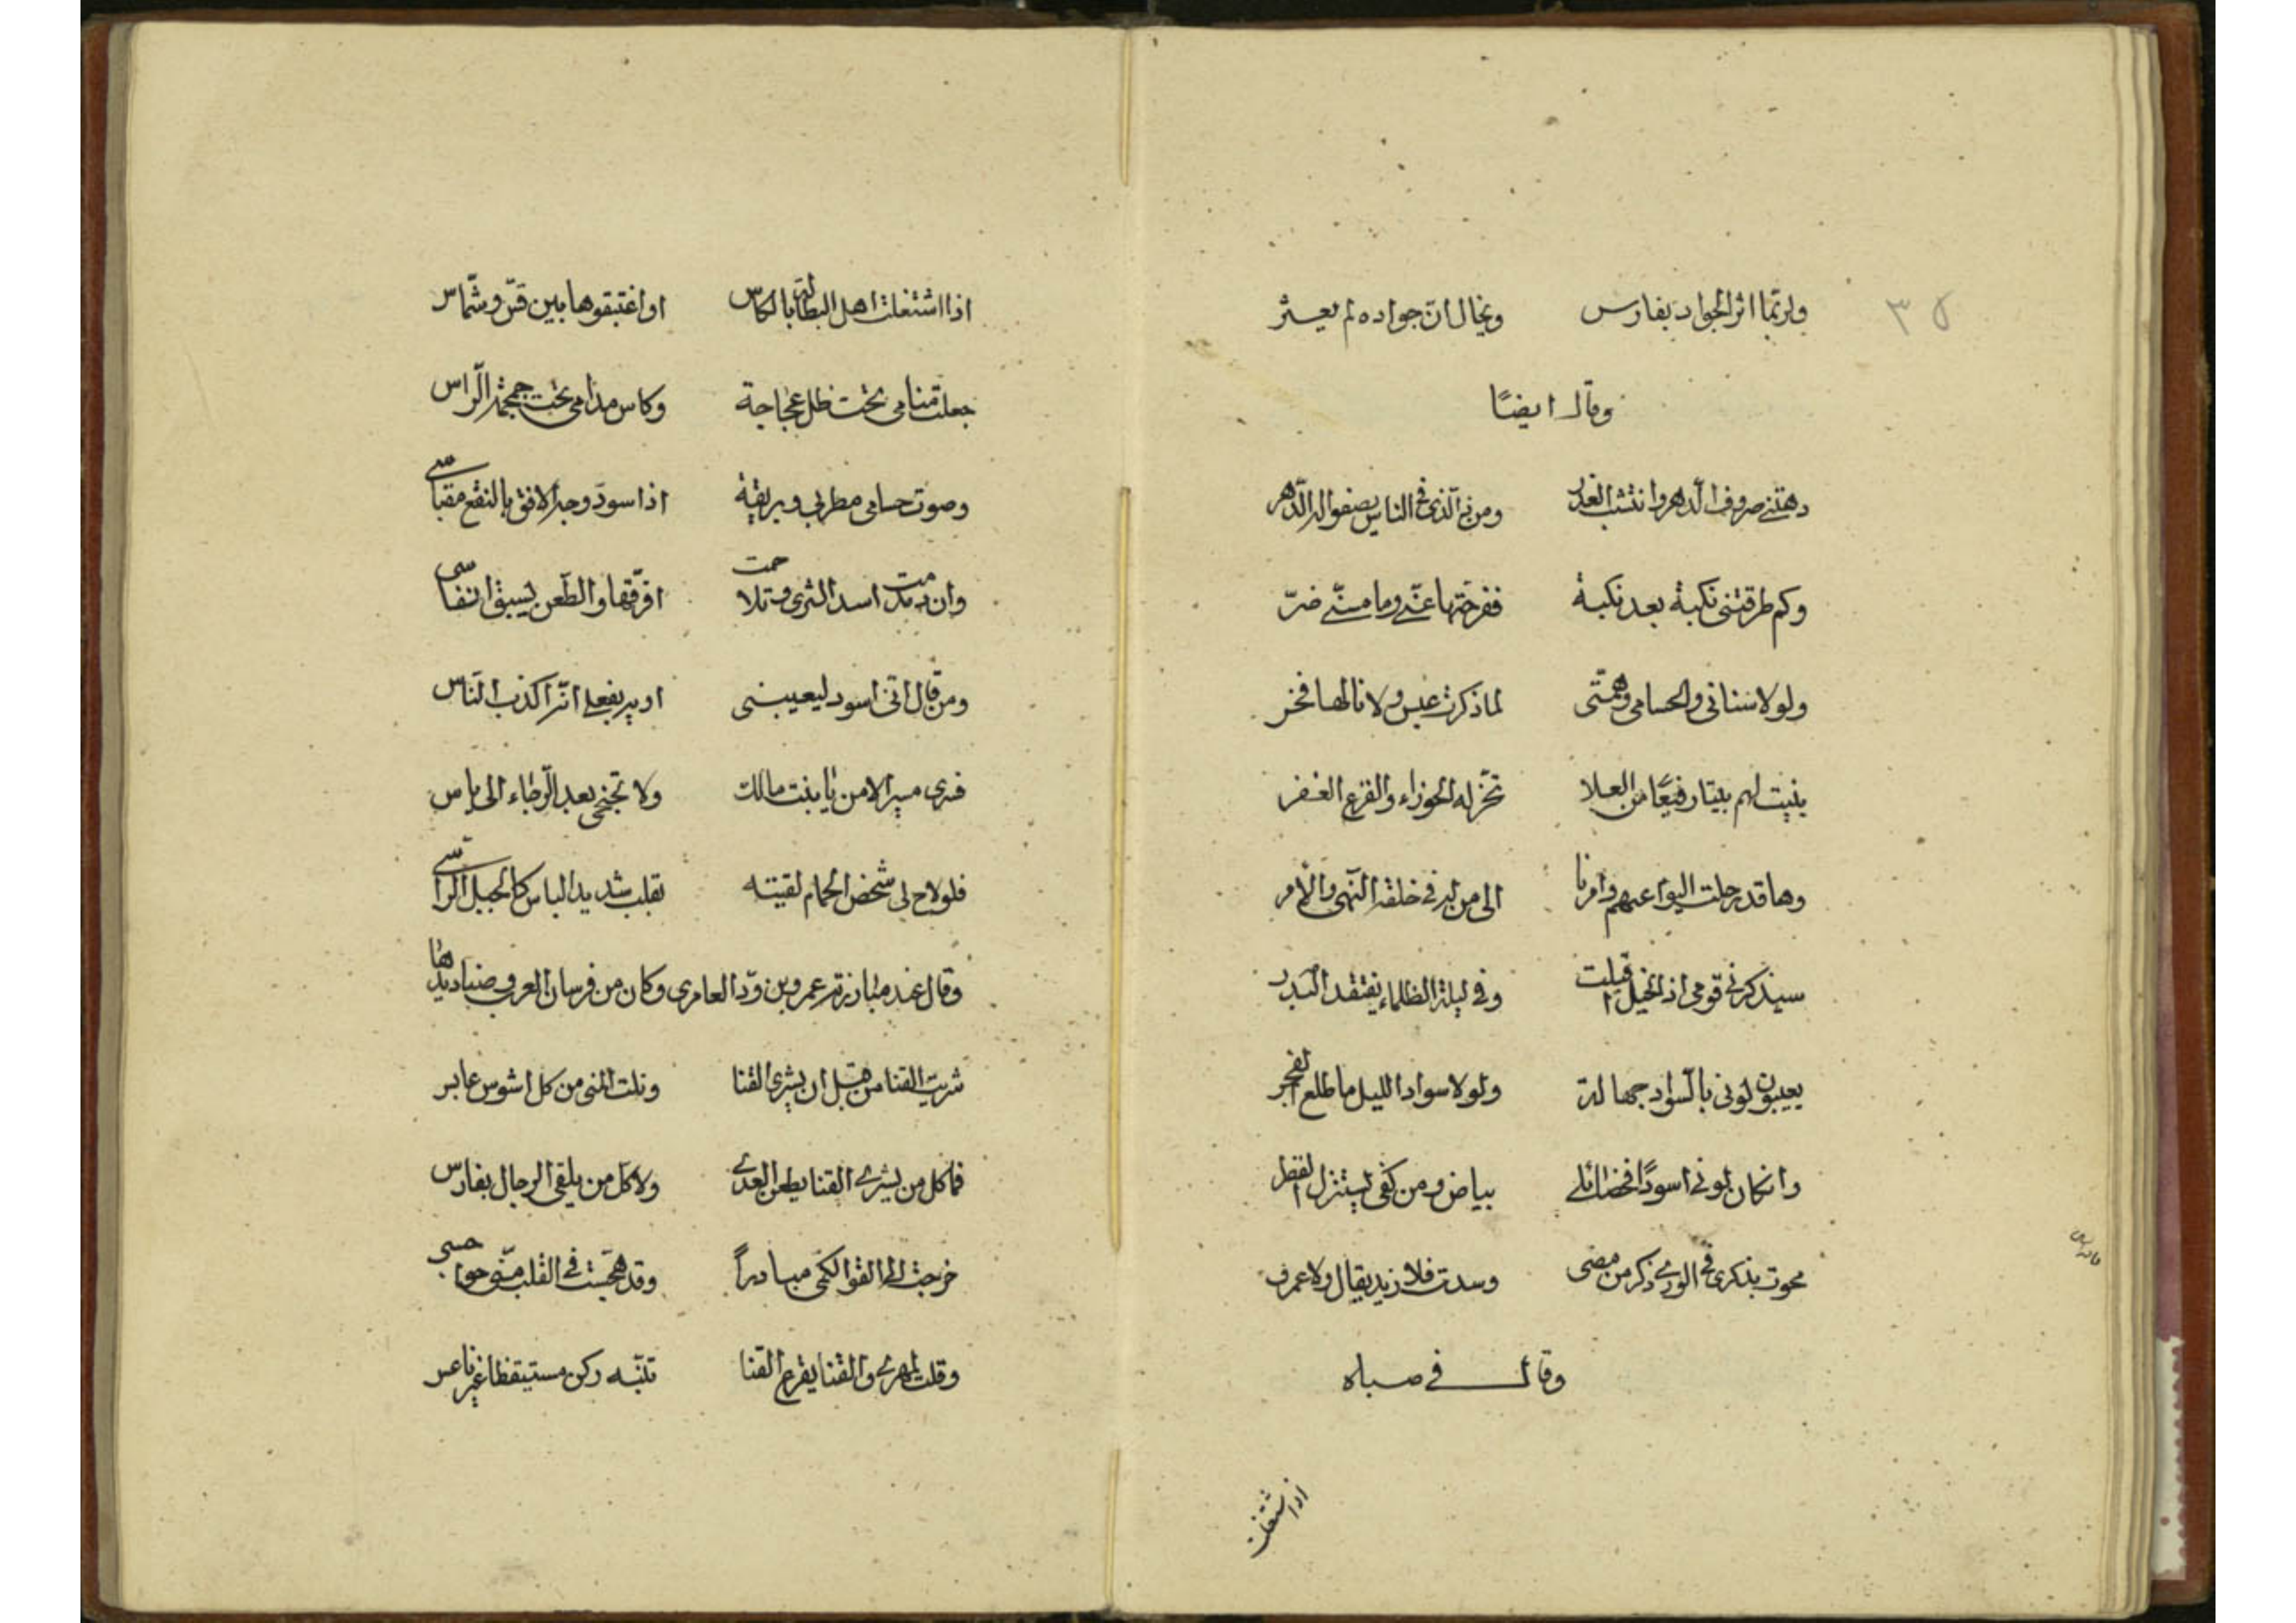 ٣٥
ولربما اثر الجواد بفارس ويخال ان جواده لم يعثر
وقال ايضًا
دهتني صروف الدهر وانتشب الغدر ومن ذي الذي في الناس يصفو له الدهر
وكم طرقتني نكبة بعد نكبة ففرجتها عني وما مسني ضرّ
ولولا سناني والحسامي وهمتي لما ذكرت عبس ولا نالها فخر
بنيت لهم بيتا رفيعًا من العلا تخر له الجوزاء والفرع الغفر
وها قد رحلت اليوم عنهم وامرنا الى من له في خلقه النهي والأمر
سيذكرني قومي اذ الخيل اقبلت وفي ليلة الظلماء يفتقد البدر
يعيبون لوني بالسواد جهالة ولولا سواد الليل ما طلع الفجر
وان كان لوني اسودًا فخضائلي بياض ومن كفي يستنزل القطر
محوت بذكري في الورى ذكر من مضى وسدت فلا زيد يقال ولا عمرو
وقال في صباه
اذا اشتغلت
اذا اشتغلت اهل البطالة بالكاس او اغتبقوها بين قسّ وشمّاس
جعلت منامي تحت ظل عجاجة وكاس مدامي تحت جمجمة الراس
وصوت حسامي مطربي وبريقه اذا سودّ وجه الافق بالنقع مقباسي
وان دمدمت اسد الشرى وتلاحمت افرّقها والطعن يسبق انفاسي
ومن قال اني اسود ليعيبني اوير بفعلي انه اكذب الناس
فسيري مسير الامن يا بنت مالك ولا تجنحي بعد الرجاء الى ياس
فلو لاح لي شخص الحمام لقيته بقلب شديد الباس كالجبل الراسي
وقال عند مبارزة عمرو بن ودّ العامري وكان من فرسان العرب وصناديدها
شريت القنا من قبل ان يشرى القنا ونلت المنى من كل اشوس عابر
فما كل من يشري القنا يطعن العدى ولا كل من يلقى الرجال بفارس
خرجت الى القوا الكمي مبادراً وقد هجست في القلب مني هواجسي
وقلت لمهري والقنا يقرع القنا تنبّه وكن مستيقظا غير ناعس